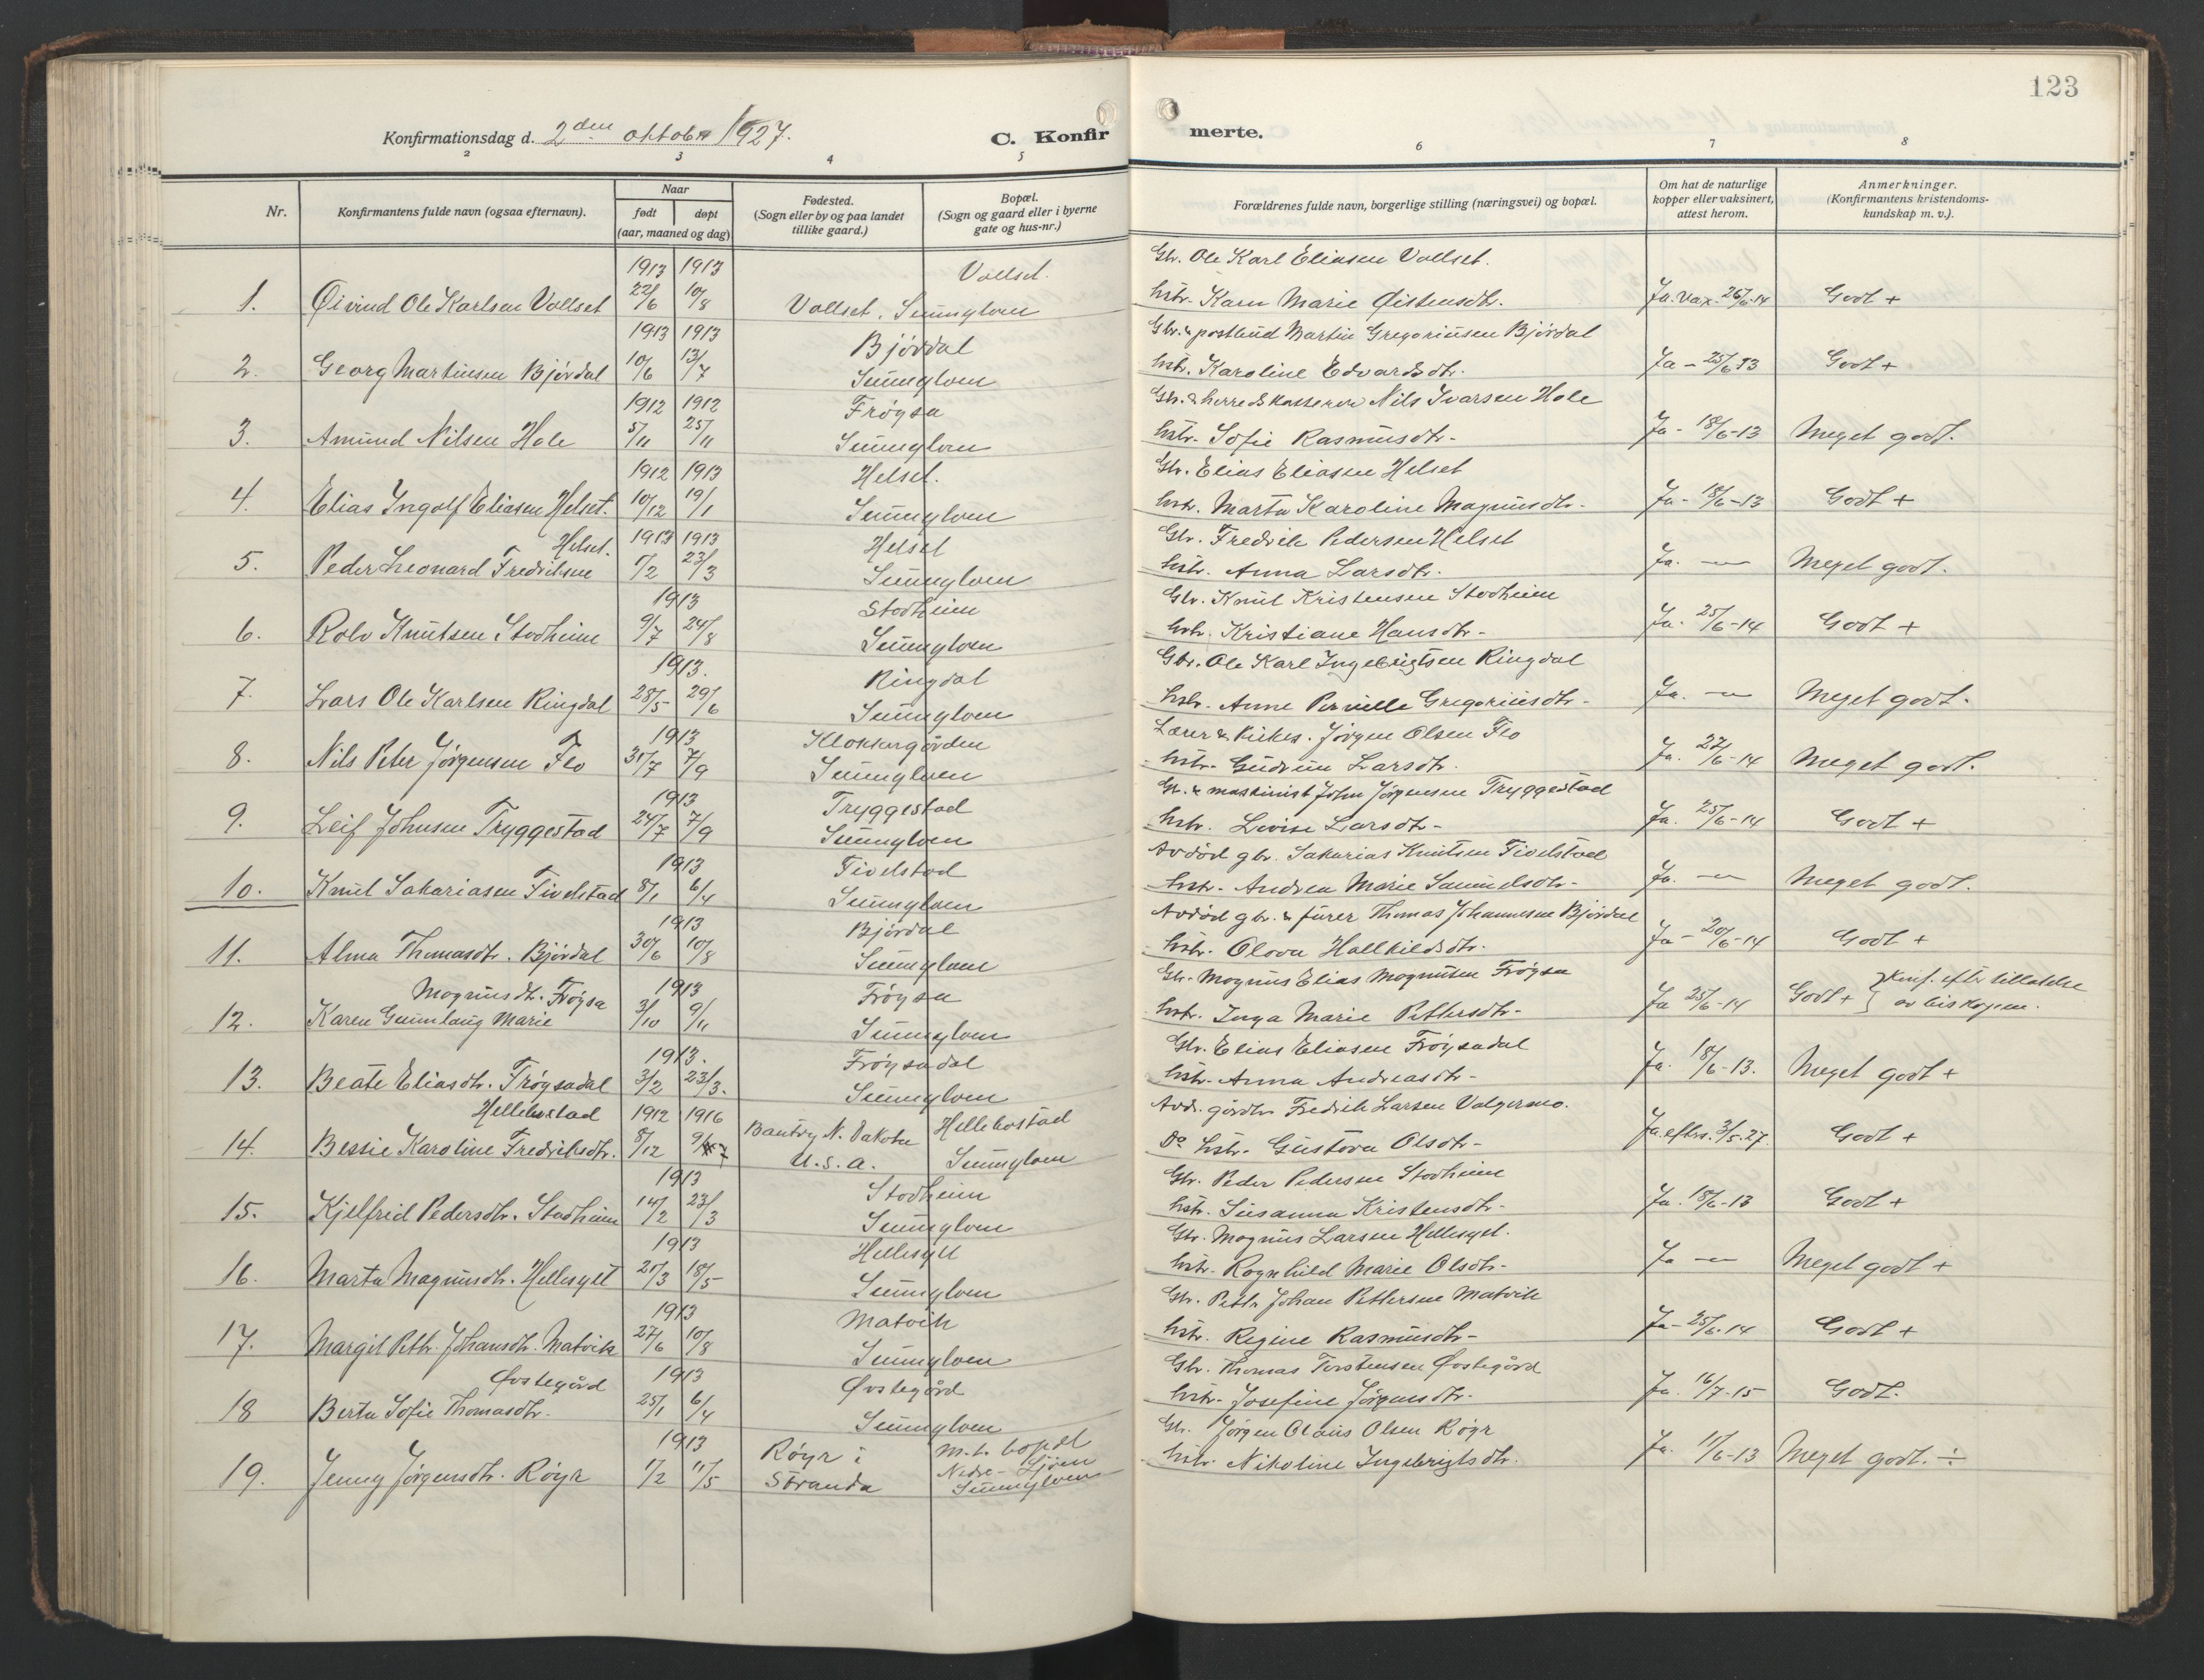 123
Konfirmationsdag d. 2den oktober 1927.
C. Konfirmerte.
2 3 4 5 6 7 8
Nr.
Konfirmantens fulde navn (ogsaa efternavn).
Naar
født døpt
(aar, maaned og dag)
Fødested.
(Sogn eller by og paa landet
tillike gaard.)
Bopæl.
(Sogn og gaard eller i byerne
gate og hus-nr.)
Forældrenes fulde navn, borgerlige stilling (næringsvei) og bopæl.
Om hat de naturlige
kopper eller vaksinert,
attest herom.
Anmerkninger.
(Konfirmantens kristendoms-
kundskap m. v.).
1913 1913 Vollset. Gbr. Ole Karl Eliasen Vollset.
1. Øivind Ole Karlsen Vollset 22/6 10/8 Vollset, Sunnylven hstr. Karn Marie Øistensdtr. Ja. vax. 26/6-14 Godt +
1913 1913 Bjørdal Gbr. & postbud Martin Gregoriussen Bjørdal
2. Georg Martinsen Bjørdal 10/6 13/7 Sunnylven hstr. Karoline Edvardsdtr. Ja - 25/6 13 Godt +
1912 1912 Frøysa Gbr. & herredskasserer Nils Ivarsen Hole
3. Amund Nilsen Hole 5/11 25/11 Sunnylven hstr. Sofie Rasmusdtr- Ja - 18/6-13 Meget godt.
1912 1913 Helset. Gbr. Elias Eliasen Helset
4. Elias Ingolf Eliasen Helset. 10/12 19/1 Sunnylven hstr. Marta Karoline Magnusdtr- Ja - 18/6-13 Godt +
Helset. 1913 1913 Helset Gbr. Fredrik Pedersen Helset
5. Peder Leonard Fredriksen 1/2 23/3 Sunnylven hstr. Anna Larsdtr. Ja. — Meget godt.
1913 Stadheim Gbr. Knut Kristensen Stadheim
6. Rolv Knutsen Stadheim 9/7 24/8 Sunnylven hstr. Kristiane Hansdtr- Ja. 25/6-14 Godt +
1913. Ringdal Gbr. Ole Karl Ingebrigtsen Ringdal
7. Lars Ole Karlsen Ringdal 28/5 29/6 Sunnylven hstr. Anne Pernille Gregoriusdtr- Ja. — Meget godt.
1913 Klokkargården Lærer & kirkes. Jørgen Olsen Flo
8. Nils Peter Jørgensen Flo 31/7 7/9 Sunnylven hstr. Gudrun Larsdtr. Ja. 27/6-14 Meget godt.
1913 Tryggestad Gbr. & maskinist John Jørgensen Tryggestad
9. Leif Johnsen Tryggestad 24/7 7/9 Sunnylven hstr. Lovise Larsdtr- Ja. 25/6-14 Godt +
1913 Tivelstad Avdød gbr. Sakarias Knutsen Tivelstad
10. Knut Sakariasen Tivelstad 8/1 6/4 Sunnylven hstr. Andrea Marie Samuelsdtr- Ja. — Meget godt.
1913 Bjørdal Avdød gbr. & furer Thomas Johannesen Bjørdal
11. Alma Thomasdtr. Bjørdal 30/6 10/8 Sunnylven hstr. Olova Hallkildsdtr. Ja - 20/6-14 Godt +
Magnusdtr. Frøysa 1913 Frøysa Gbr. Magnus Elias Magnusen Frøysa } Konf. efter tillatelse
12. Karen Gunnlaug Marie 3/10 9/11 Sunnylven hstr. Inga Marie Pettersdtr- Ja 25/6-14 Godt + av biskopen.
1913. Frøysadal Gbr. Elias Eliasen Frøysadal
13. Beate Eliasdtr. Frøysadal 3/2 23/3. Sunnylven hstr. Anna Andreasdtr- Ja. 18/6-13. Meget godt +
Hellebostad 1912 1916 Bantry N. Dakota Hellebostad Avd. gårdbr. Fredrik Larsen Valgermo.
14. Bessie Karoline Fredriksdtr. 8/12 9/7 U.S.A. Sunnylven Do hstr. Gustava Olsdtr- Ja. eftrs. 3/5.27. Godt +
1913 Stadheim Gbr. Peder Pedersen Stadheim
15. Kjelfrid Pedersdtr. Stadheim 14/2 23/3 Sunnylven hstr. Susanna Kristensdtr- Ja. 18/6-13 Godt +
1913 Hellesylt Gbr. Magnus Larsen Hellesylt.
16. Marta Magnusdtr. Hellesylt 21/3 18/5 Sunnylven hstr. Ragnhild Marie Olsdtr- Ja — Meget godt +
1913 Matvik Gbr. Petter Johan Pettersen Matvik
17. Margit Pettr. Johansdtr. Matvik 27/6 10/8 Sunnylven hstr. Regine Rasmusdtr- Ja - 25/6-14 Godt +
Øvstegård 1913 Øvstegård Gbr. Thomas Torstensen Øvstegård
18 Berta Sofie Thomasdtr. 25/1 6/4 Sunnylven hstr. Josefine Jørgensdtr- Ja. 16/7-15 Godt.
1913 Røyr i M.t. bopæl Gbr. Jørgen Olaus Olsen Røyr
19. Jenny Jørgensdtr. Røyr 1/2 11/5 Stranda Nedre- Sunnylven hstr. Nikoline Ingebrigtsdtr. Ja. 11/6-13 Meget godt. ÷